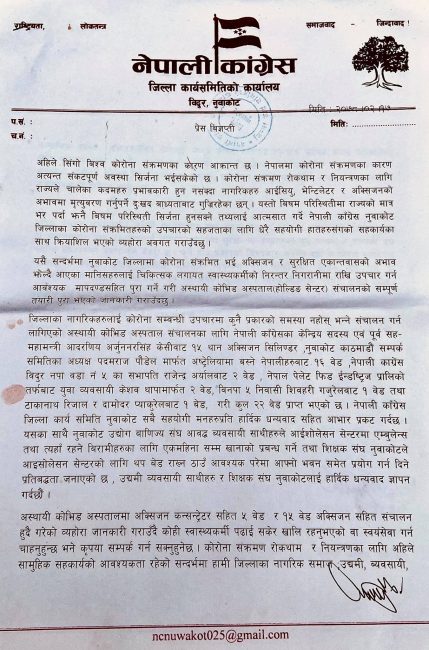 राष्ट्रियता, लोकतन्त्र समाजवाद - जिन्दावाद !
नेपाली कांग्रेस
जिल्ला कार्यसमितिको कार्यालय
विदुर, नुवाकोट
मिति : २०७८।०२।१७
प.सं. : मिति:
च.नं. :
प्रेस बिज्ञप्ती
अहिले सिंगो बिश्व कोरोना संक्रमणका कारण आक्रान्त छ । नेपालमा कोरोना संक्रमणका कारण
अत्यन्त संकटपूर्ण अवस्था सिर्जना भईसकेको छ । कोरोना संक्रमण रोकथाम र नियन्त्रणका लागि
राज्यले चालेका कदमहरु प्रभावकारी हुन नसक्दा नागरिकहरु आईसियु, भेन्टिलेटर र अक्सिजनको
अभावमा मृत्युबरण गर्नुपर्ने दुःखद बाध्यताबाट गुज्रिरहेका छन् । यस्तो बिषम परिस्थितीमा राज्यको मात्र
भर पर्दा झनै बिषम परिस्थिती सिर्जना हुनसक्ने तथ्यलाई आत्मसात गर्दै नेपाली कांग्रेस नुवाकोट
जिल्लाका कोरोना संक्रमितहरुको उपचारको सहजताका लागि धेरै सहयोगी हातहरुसंगको सहकार्यका
साथ क्रियाशिल भएको व्यहोरा अवगत गराउँदछु ।
यसै सन्दर्भमा नुवाकोट जिल्लामा कोरोना संक्रमित भई अक्सिजन र सुरक्षित एकान्तवासको अभाव
झेल्दै आएका मानिसहरुलाई चिकित्सक लगायत स्वास्थ्यकर्मीको निरन्तर निगरानीमा राखि उपचार गर्न
आवश्यक मापदण्डसहित पुरा गर्ने गरी अस्थायी कोभिड अस्पताल(होल्डिङ सेन्टर) संचानको सम्पुर्ण
तयारी पुरा भएको जानकारी गराउँदछु ।
जिल्लाका नागरिकहरुलाई कोरोना सम्बन्धी उपचारमा कुनै प्रकारको समस्या नहोस् भन्ने संचालन गर्न
लागिएको अस्थायी कोभिड अस्पताल संचालनका लागि नेपाली कांग्रेसका केन्द्रिय सदस्य एवं पूर्व सह-
महामन्त्री आदरणिय अर्जुननरसिंह केसीबाट १५ थान अक्सिजन सिलिण्डर ,नुवाकोट काठमाडौं सम्पर्क
समितिका अध्यक्ष पदमराज पौडेल मार्फत अष्ट्रेलियामा बस्ने नेपालीहरुबाट १६ वेड ,नेपाली कांग्रेस
विदुर नपा वडा नं ५ का सभापति राजेन्द्र अर्यालबाट २ वेड, नेपाल पेलेट फिड ईन्डष्ट्रिज प्रालिको
तर्फबाट युवा व्यवसायी केशव थापामार्फत २ वेड,बिनपा ५ निवासी शिवहरी गजुरेलबाट १ वेड तथा
टाकानाथ रिजाल र दामोदर प्याकुरेलबाट १ वेड, गरी कुल २२ वेड प्राप्त भएको छ । नेपाली कांग्रेस
जिल्ला कार्य समिति नुवाकोट सबै सहयोगी मनहरुप्रति हार्दिक धन्यवाद सहित आभार प्रकट गर्दछ ।
यसका साथै नुवाकोट उद्योग बाणिज्य संघ आवद्ध ब्यवसायी साथीहरुले आईशोलेसन सेन्टरमा एम्बुलेन्स
तथा त्यहां रहने बिरामीहरुका लागि एकमहिना सम्म खानाको प्रबन्ध गर्ने तथा शिक्षक संघ नुवाकोटले
आइसोलेसन सेन्टरको लागि थप बेड राख्न ठाउं आवश्यक परेमा आफ्नो भवन समेत प्रयोग गर्न दिने
प्रतिबद्धता जनाएको छ , उद्यमी ब्यवसायी साथीहरु र शिक्षक संघ नुवाकोटलाई हार्दिक धन्यवाद ज्ञापन
गर्दछौं ।
अस्थायी कोभिड अस्पतालमा अक्सिजन कन्सन्ट्रेटर सहित ५ बेड र १५ बेड अक्सिजन सहित संचालन
हुदै गरेको व्यहोरा जानकारी गराउदै कोही स्वास्थ्यकर्मी पढाई सकेर खालि रहनुभएको वा स्वयंसेवा गर्न
चाहनुहुन्छ भने कृपया सम्पर्क गर्न सक्नुहुनेछ । कोरोना संक्रमण रोकथाम र नियन्त्रणका लागि अहिले
सामुहिक सहकार्यको आवश्यकता रहेको सन्दर्भमा हामी जिल्लाका नागरिक समाज, उद्यमी, ब्यवसायी,
ncnuwakot025@gmail.com